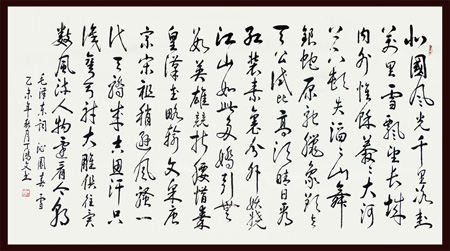 北國風光千里冰封
萬里雪飄望長城
內外惟餘莽々大河
上下頓失滔々山舞
銀蛇原馳臘象欲與
天公試比高須晴日看
紅裝素裹分外妖嬈
江山如此多嬌引無
數英雄競折腰惜秦
皇漢武略輸文采唐
宗宋祖稍遜風騷一
代天驕成吉思汗只
識彎弓射大雕俱往矣
數風流人物還看今朝
毛澤東詞 沁園春 雪
乙未年秋月